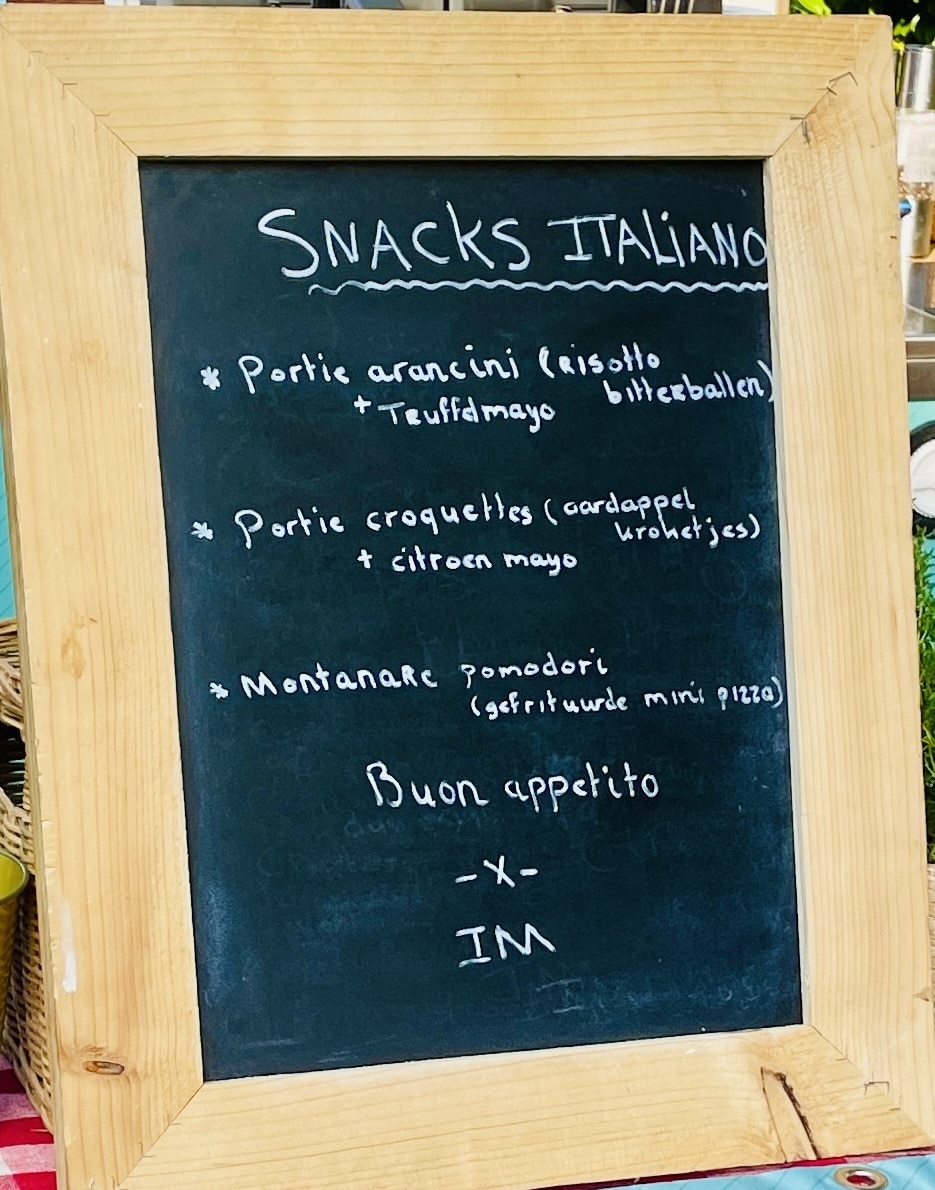 SNACKS ITALIANO
* Portie arancini (Risotto
bitterballen)
+ Truffelmayo
* Portie croquettes (aardappel
kroketjes)
+ citroen mayo
* Montanare pomodori
(gefrituurde mini pizza)
Buon appetito
-X-
IM